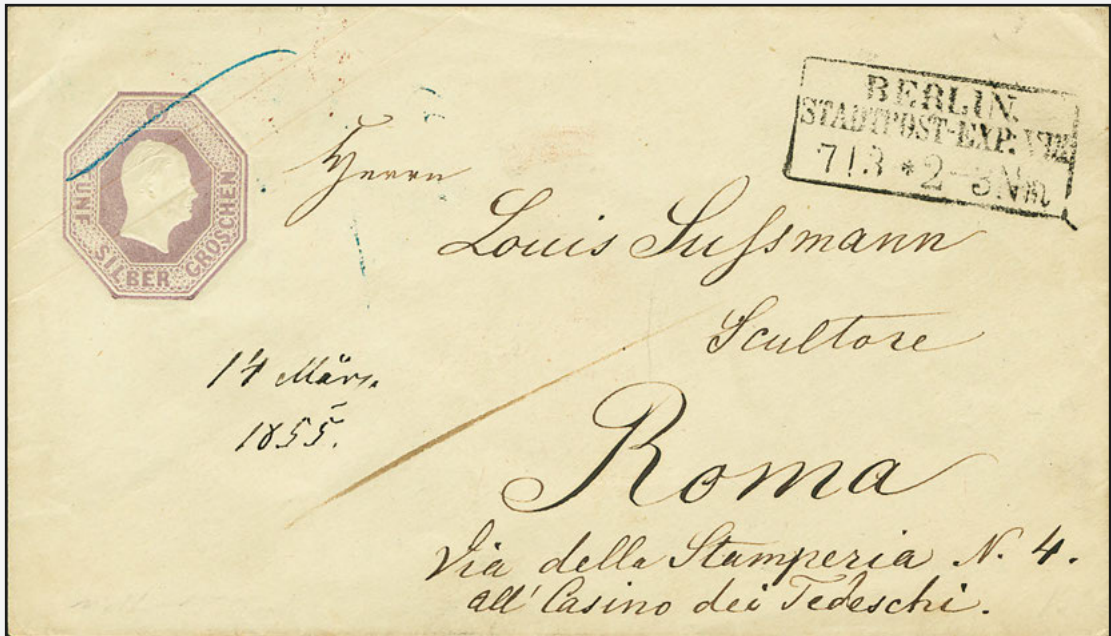 FÜNF SILBER GROSCHEN
BERLIN.
STADTPOST-EXP. VII
7 | 3 * 2-3 Nm
Herrn
Louis Sussmann
Scultore
Roma
Via della Stamperia N. 4.
all' Casino dei Tedeschi.
14 März.
1855.